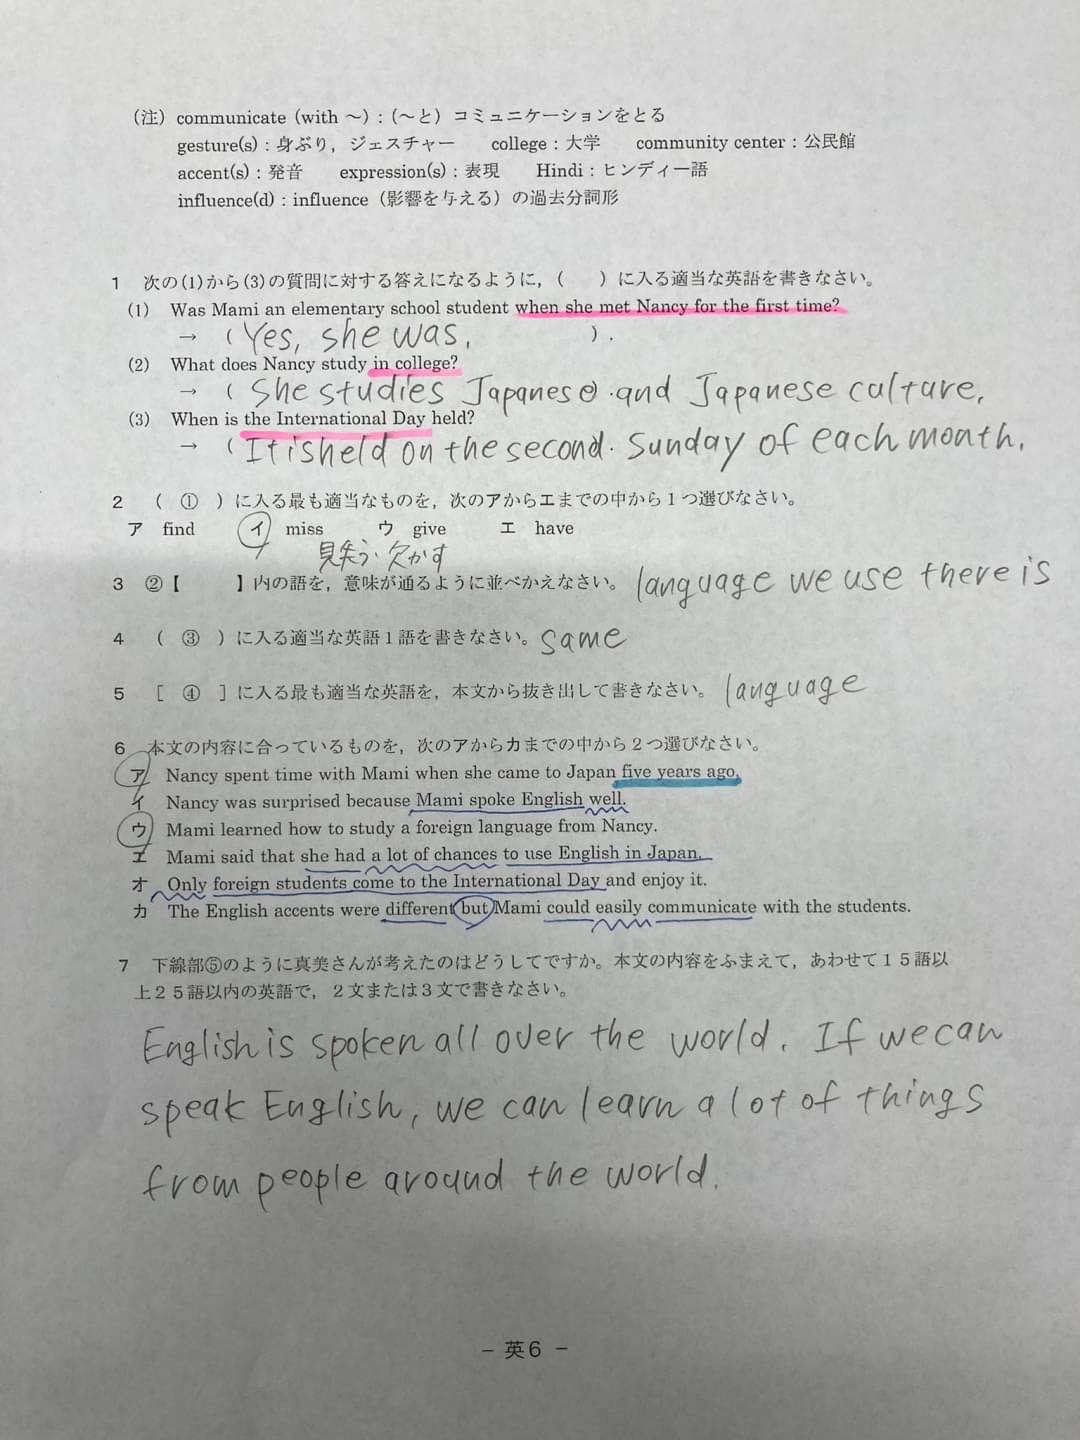 （注）communicate（with ～）：（～と）コミュニケーションをとる
gesture(s)：身ぶり，ジェスチャー　college：大学　community center：公民館
accent(s)：発音　expression(s)：表現　Hindi：ヒンディー語
influence(d)：influence（影響を与える）の過去分詞形
1　次の(1)から(3)の質問に対する答えになるように，（　　）に入る適当な英語を書きなさい。
(1)　Was Mami an elementary school student when she met Nancy for the first time?
→　（Yes, she was.　）.
(2)　What does Nancy study in college?
→　（She studies Japanese and Japanese culture.
(3)　When is the International Day held?
→　（It is held on the second Sunday of each month.
2　（　①　）に入る最も適当なものを，次のアからエまでの中から１つ選びなさい。
ア　find　イ　miss　ウ　give　エ　have
見失う・欠かす
3　②【　　　】内の語を，意味が通るように並べかえなさい。language we use there is
4　（　③　）に入る適当な英語１語を書きなさい。same
5　［　④　］に入る最も適当な英語を，本文から抜き出して書きなさい。language
6　本文の内容に合っているものを，次のアからカまでの中から２つ選びなさい。
ア　Nancy spent time with Mami when she came to Japan five years ago.
イ　Nancy was surprised because Mami spoke English well.
ウ　Mami learned how to study a foreign language from Nancy.
エ　Mami said that she had a lot of chances to use English in Japan.
オ　Only foreign students come to the International Day and enjoy it.
カ　The English accents were different but Mami could easily communicate with the students.
7　下線部⑤のように真美さんが考えたのはどうしてですか。本文の内容をふまえて，あわせて１５語以
上２５語以内の英語で，２文または３文で書きなさい。
English is spoken all over the world. If we can
speak English, we can learn a lot of things
from people around the world.
－ 英６ －